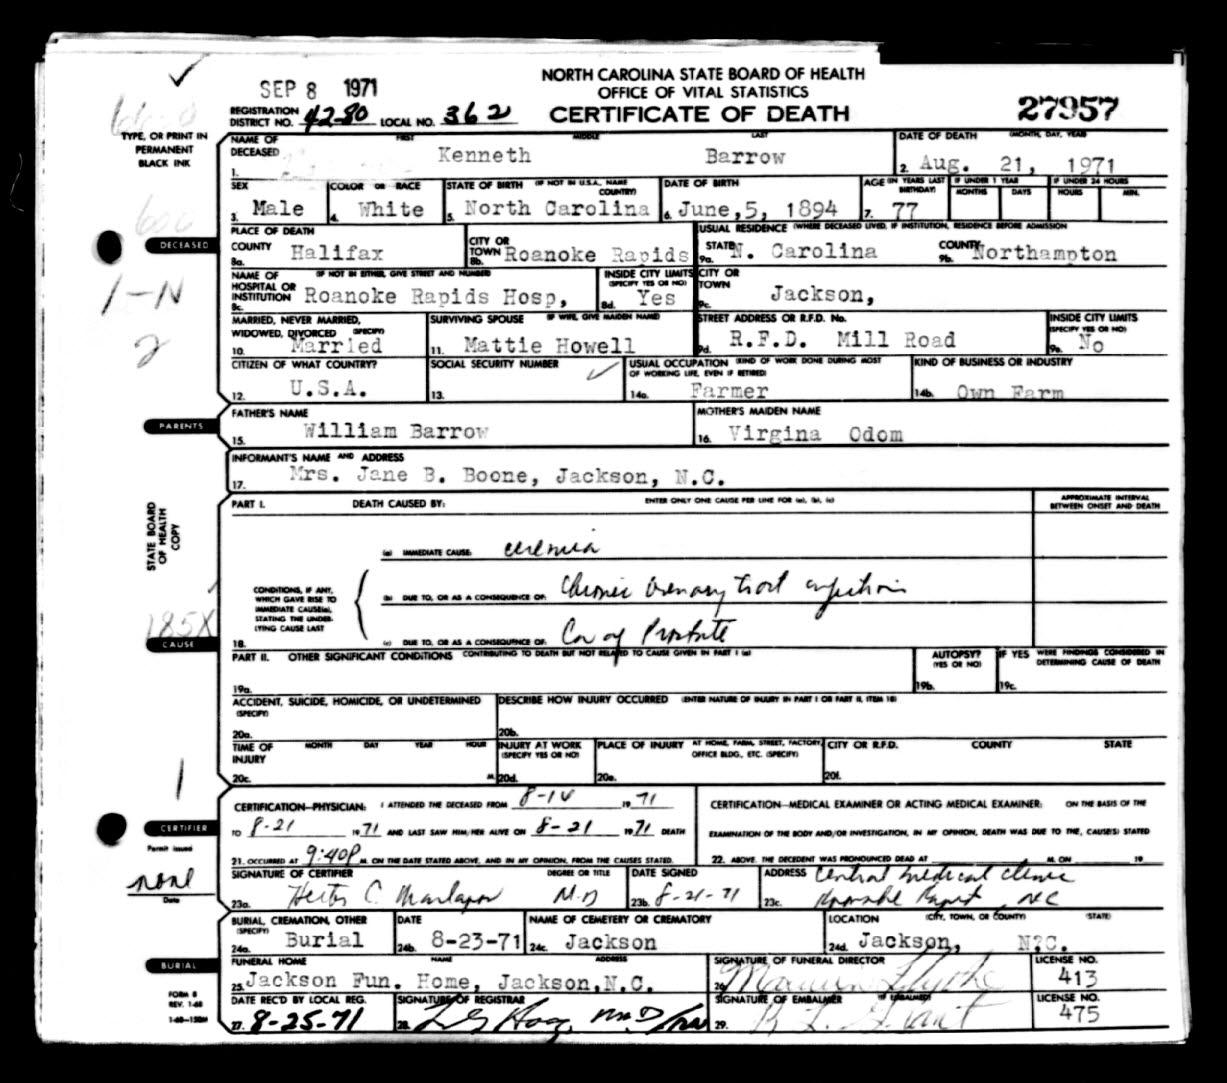 SEP 8 1971
NORTH CAROLINA STATE BOARD OF HEALTH
OFFICE OF VITAL STATISTICS
CERTIFICATE OF DEATH
27957
REGISTRATION DISTRICT NO. 42-80 LOCAL NO. 362
TYPE, OR PRINT IN
PERMANENT
BLACK INK
NAME OF DECEASED FIRST MIDDLE LAST
1. Kenneth Barrow
DATE OF DEATH (MONTH, DAY, YEAR)
2. Aug. 21, 1971
600
SEX
3. Male
COLOR OR RACE
4. White
STATE OF BIRTH (IF NOT IN U.S.A., NAME COUNTRY)
5. North Carolina
DATE OF BIRTH
6. June,5, 1894
AGE (IN YEARS LAST BIRTHDAY)
7. 77
IF UNDER 1 YEAR
MONTHS DAYS
IF UNDER 24 HOURS
HOURS MIN.
DECEASED
PLACE OF DEATH
COUNTY
8a. Halifax
CITY OR TOWN
8b. Roanoke Rapids
USUAL RESIDENCE (WHERE DECEASED LIVED, IF INSTITUTION, RESIDENCE BEFORE ADMISSION
STATE
9a. N. Carolina
COUNTY
9b. Northampton
1-N
2
NAME OF HOSPITAL OR INSTITUTION (IF NOT IN EITHER, GIVE STREET AND NUMBER)
8c. Roanoke Rapids Hosp,
INSIDE CITY LIMITS (SPECIFY YES OR NO)
8d. Yes
CITY OR TOWN
9c. Jackson,
MARRIED, NEVER MARRIED, WIDOWED, DIVORCED (SPECIFY)
10. Married
SURVIVING SPOUSE (IF WIFE, GIVE MAIDEN NAME)
11. Mattie Howell
STREET ADDRESS OR R.F.D. No.
9d. R.F.D. Mill Road
INSIDE CITY LIMITS (SPECIFY YES OR NO)
9e. No
CITIZEN OF WHAT COUNTRY?
12. U.S.A.
SOCIAL SECURITY NUMBER
13.
USUAL OCCUPATION (KIND OF WORK DONE DURING MOST OF WORKING LIFE, EVEN IF RETIRED)
14a. Farmer
KIND OF BUSINESS OR INDUSTRY
14b. Own Farm
PARENTS
FATHER'S NAME
15. William Barrow
MOTHER'S MAIDEN NAME
16. Virgina Odom
INFORMANT'S NAME AND ADDRESS
17. Mrs. Jane B. Boone, Jackson, N.C.
STATE BOARD
OF HEALTH
COPY
PART I. DEATH CAUSED BY: ENTER ONLY ONE CAUSE PER LINE FOR (a), (b), (c)
APPROXIMATE INTERVAL BETWEEN ONSET AND DEATH
(a) IMMEDIATE CAUSE: uremia
CONDITIONS, IF ANY, WHICH GAVE RISE TO IMMEDIATE CAUSE(a), STATING THE UNDERLYING CAUSE LAST
(b) DUE TO, OR AS A CONSEQUENCE OF: Chronic urinary tract infection
(c) DUE TO, OR AS A CONSEQUENCE OF: Ca of Prostate
18.
185X
CAUSE
PART II. OTHER SIGNIFICANT CONDITIONS CONTRIBUTING TO DEATH BUT NOT RELATED TO CAUSE GIVEN IN PART I (a)
19a.
AUTOPSY? (YES OR NO)
19b.
IF YES WERE FINDINGS CONSIDERED IN DETERMINING CAUSE OF DEATH
19c.
ACCIDENT, SUICIDE, HOMICIDE, OR UNDETERMINED (SPECIFY)
20a.
DESCRIBE HOW INJURY OCCURRED (ENTER NATURE OF INJURY IN PART I OR PART II, ITEM 18)
20b.
TIME OF INJURY MONTH DAY YEAR HOUR
20c. M.
INJURY AT WORK (SPECIFY YES OR NO)
20d.
PLACE OF INJURY AT HOME, FARM, STREET, FACTORY, OFFICE BLDG., ETC. (SPECIFY)
20e.
CITY OR R.F.D. COUNTY STATE
20f.
1
CERTIFIER
Permit issued
none
Date
CERTIFICATION—PHYSICIAN: I ATTENDED THE DECEASED FROM 8-14 1971
TO 8-21 1971 AND LAST SAW HIM/HER ALIVE ON 8-21 1971 DEATH
21. OCCURRED AT 9:40P M. ON THE DATE STATED ABOVE, AND IN MY OPINION, FROM THE CAUSES STATED.
CERTIFICATION—MEDICAL EXAMINER OR ACTING MEDICAL EXAMINER: ON THE BASIS OF THE
EXAMINATION OF THE BODY AND/OR INVESTIGATION, IN MY OPINION, DEATH WAS DUE TO THE, CAUSE(S) STATED
22. ABOVE. THE DECEDENT WAS PRONOUNCED DEAD AT M. ON 19
SIGNATURE OF CERTIFIER DEGREE OR TITLE
23a. C. M.D
DATE SIGNED
23b. 8-21-71
ADDRESS
Central medical clinic
23c. Roanoke Rapids, NC
BURIAL, CREMATION, OTHER (SPECIFY)
24a. Burial
DATE
24b. 8-23-71
NAME OF CEMETERY OR CREMATORY
24c. Jackson
LOCATION (CITY, TOWN, OR COUNTY) (STATE)
24d. Jackson, N?C.
BURIAL
FUNERAL HOME NAME ADDRESS
25. Jackson Fun. Home, Jackson,N.C.
SIGNATURE OF FUNERAL DIRECTOR
26.
LICENSE NO.
413
FORM 8
REV. 1-68
1-68-150M
DATE REC'D BY LOCAL REG.
27. 8-25-71
SIGNATURE OF REGISTRAR
28.
SIGNATURE OF EMBALMER (IF EMBALMED)
29. Grant
LICENSE NO.
475